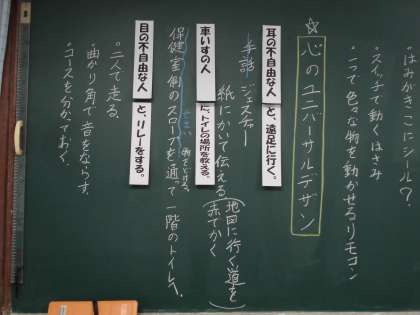 はみがきここにシール?
・スイッチで動くはさみ
・一つで色々な物を動かせるリモコン
☆心のユニバーサルデザイン
耳の不自由な人と、遠足に行く。
手話 ジェスチャー
紙にかいて伝える
(地図に行く道を赤でかく)
車いすの人に、トイレの場所を教える。
物をどける。
保健室側のスロープを通って一階のトイレへ。
目の不自由な人と、リレーをする。
・二人で走る。
・曲がり角で音をならす。
・コースを分かっておく。